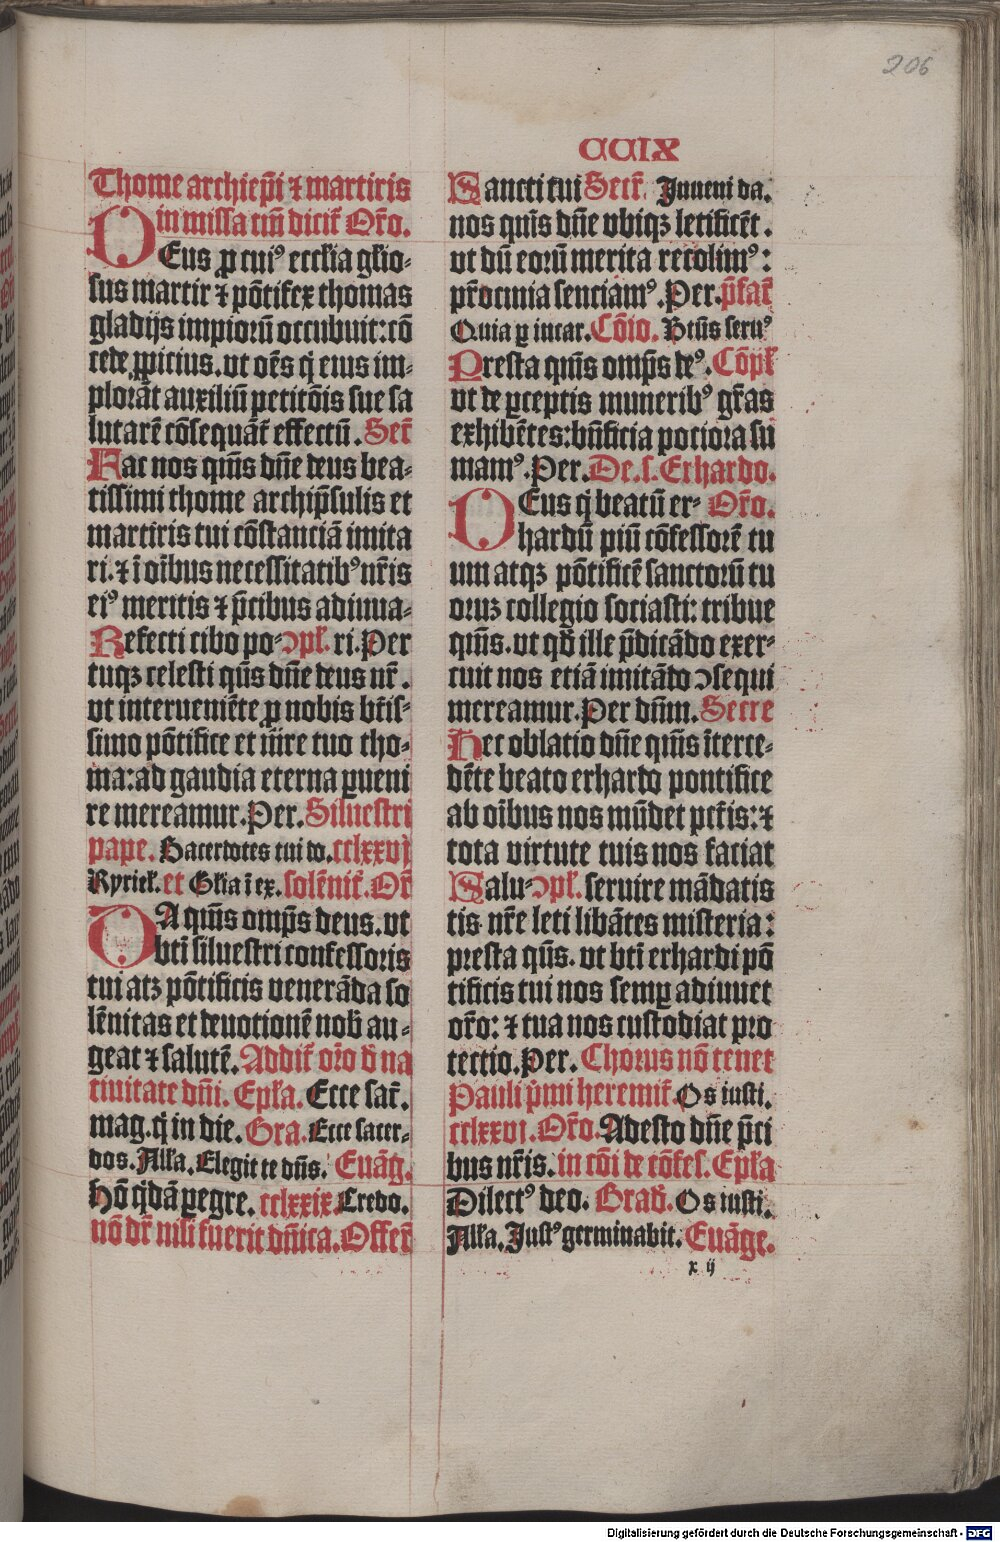 206
CCIX
Thome archiep̃i ⁊ martiris
in missa tm̃ dicit̃ Or̃o.
DEus ꝓ cuiꝰ eccl̃ia glĩo-
sus martir ⁊ põtifex thomas
gladijs impiorũ occubuit: cõ
cede ꝓpicius. vt oẽs q̃ eius im-
plorãt auxiliũ petitõis sue sa
lutarẽ cõsequãt̃ effectũ. Secr̃
Fac nos qm̃s dñe deus bea-
tissimi thome archip̃sulis et
martiris tui cõstanciã imita
ri. ⁊ ĩ oĩbus necessitatibꝰ nr̃is
eiꝰ meritis ⁊ p̃cibus adiuua-
Refecti cibo po- ↄpl̃. ri. Per
tuqꝫ celesti qũs dñe deus nr̃.
vt interueniẽte ꝓ nobis bt̃is-
simo põtifice et m̃re tuo tho-
ma: ad gaudia eterna ꝑueni
re mereamur. Per. Siluestri
pape. Sacerdotes tui do. cclxxvj
Kyriel̃. et Glĩa ĩ ex. solẽnit̃. Or̃
DA qm̃s omp̃s deus. vt
bti̇̃ siluestri confessoris
tui atꝫ põtificis venerãda so
lẽnitas et deuotionẽ nob̃ au-
geat ⁊ salutẽ. Addit̃ or̃o d̃ na
tiuitate dñi. Epl̃a. Ecce sac̃.
mag. q̃ in die. Gra. Ecce sacer-
dos. All̃a. Elegit te dñs. Euãg.
Hõ q̃dã ꝑegre. cclxxix Credo.
nõ dr̃ nisi fuerit dñica. Offer̃
Sancti tui Secr̃. Inueni da.
nos qũis dñe vbiqꝫ letificẽt.
vt dũ eorũ merita recolimꝰ:
pr̃ocinia senciamꝰ. Per. p̃fat̃
Quia ꝑ incar. Cõio. Bt̃us seruꝰ
Presta qm̃s omp̃s deꝰ. Cõpl̃
vt de ꝑceptis muneribꝰ gr̃as
exhibẽtes: bñficia pociora su
mamꝰ. Per. De. s. Erhardo.
DEus q̃ beatũ er- Or̃o.
hardũ piũ cõfessorẽ tu
um atqꝫ põtificẽ sanctorũ tu
oruꝫ collegio sociasti: tribue
qm̃s. vt qd̃ ille p̃dicãdo exer-
cuit nos etiã imitãdo ↄsequi
mereamur. Per dñm. Secre
Hec oblatio dñe qm̃s ĩterce-
dẽte beato erhardo pontifice
ab oĩbus nos mũdet pctĩs: ⁊
tota virtute tuis nos faciat
Salu- ↄpl̃. seruire mãdatis
tis nr̃e leti libãtes misteria:
presta qũs. vt bti̇̃ erhardi põ
tificis tui nos semꝑ adiuuet
or̃o: ⁊ tua nos custodiat pro
tectio. Per. Chorus nõ tenet
Pauli p̃mi heremit̃. Os iusti.
cclxxvi. Or̃o. Adesto dñe p̃ci
bus nr̃is. in cõi de cõfes. Epl̃a
Dilectꝰ deo. Grad̃. Os iusti.
All̃a. Justꝰ germinabit. Euãge.
x ij
Digitalisierung gefördert durch die Deutsche Forschungsgemeinschaft - DFG